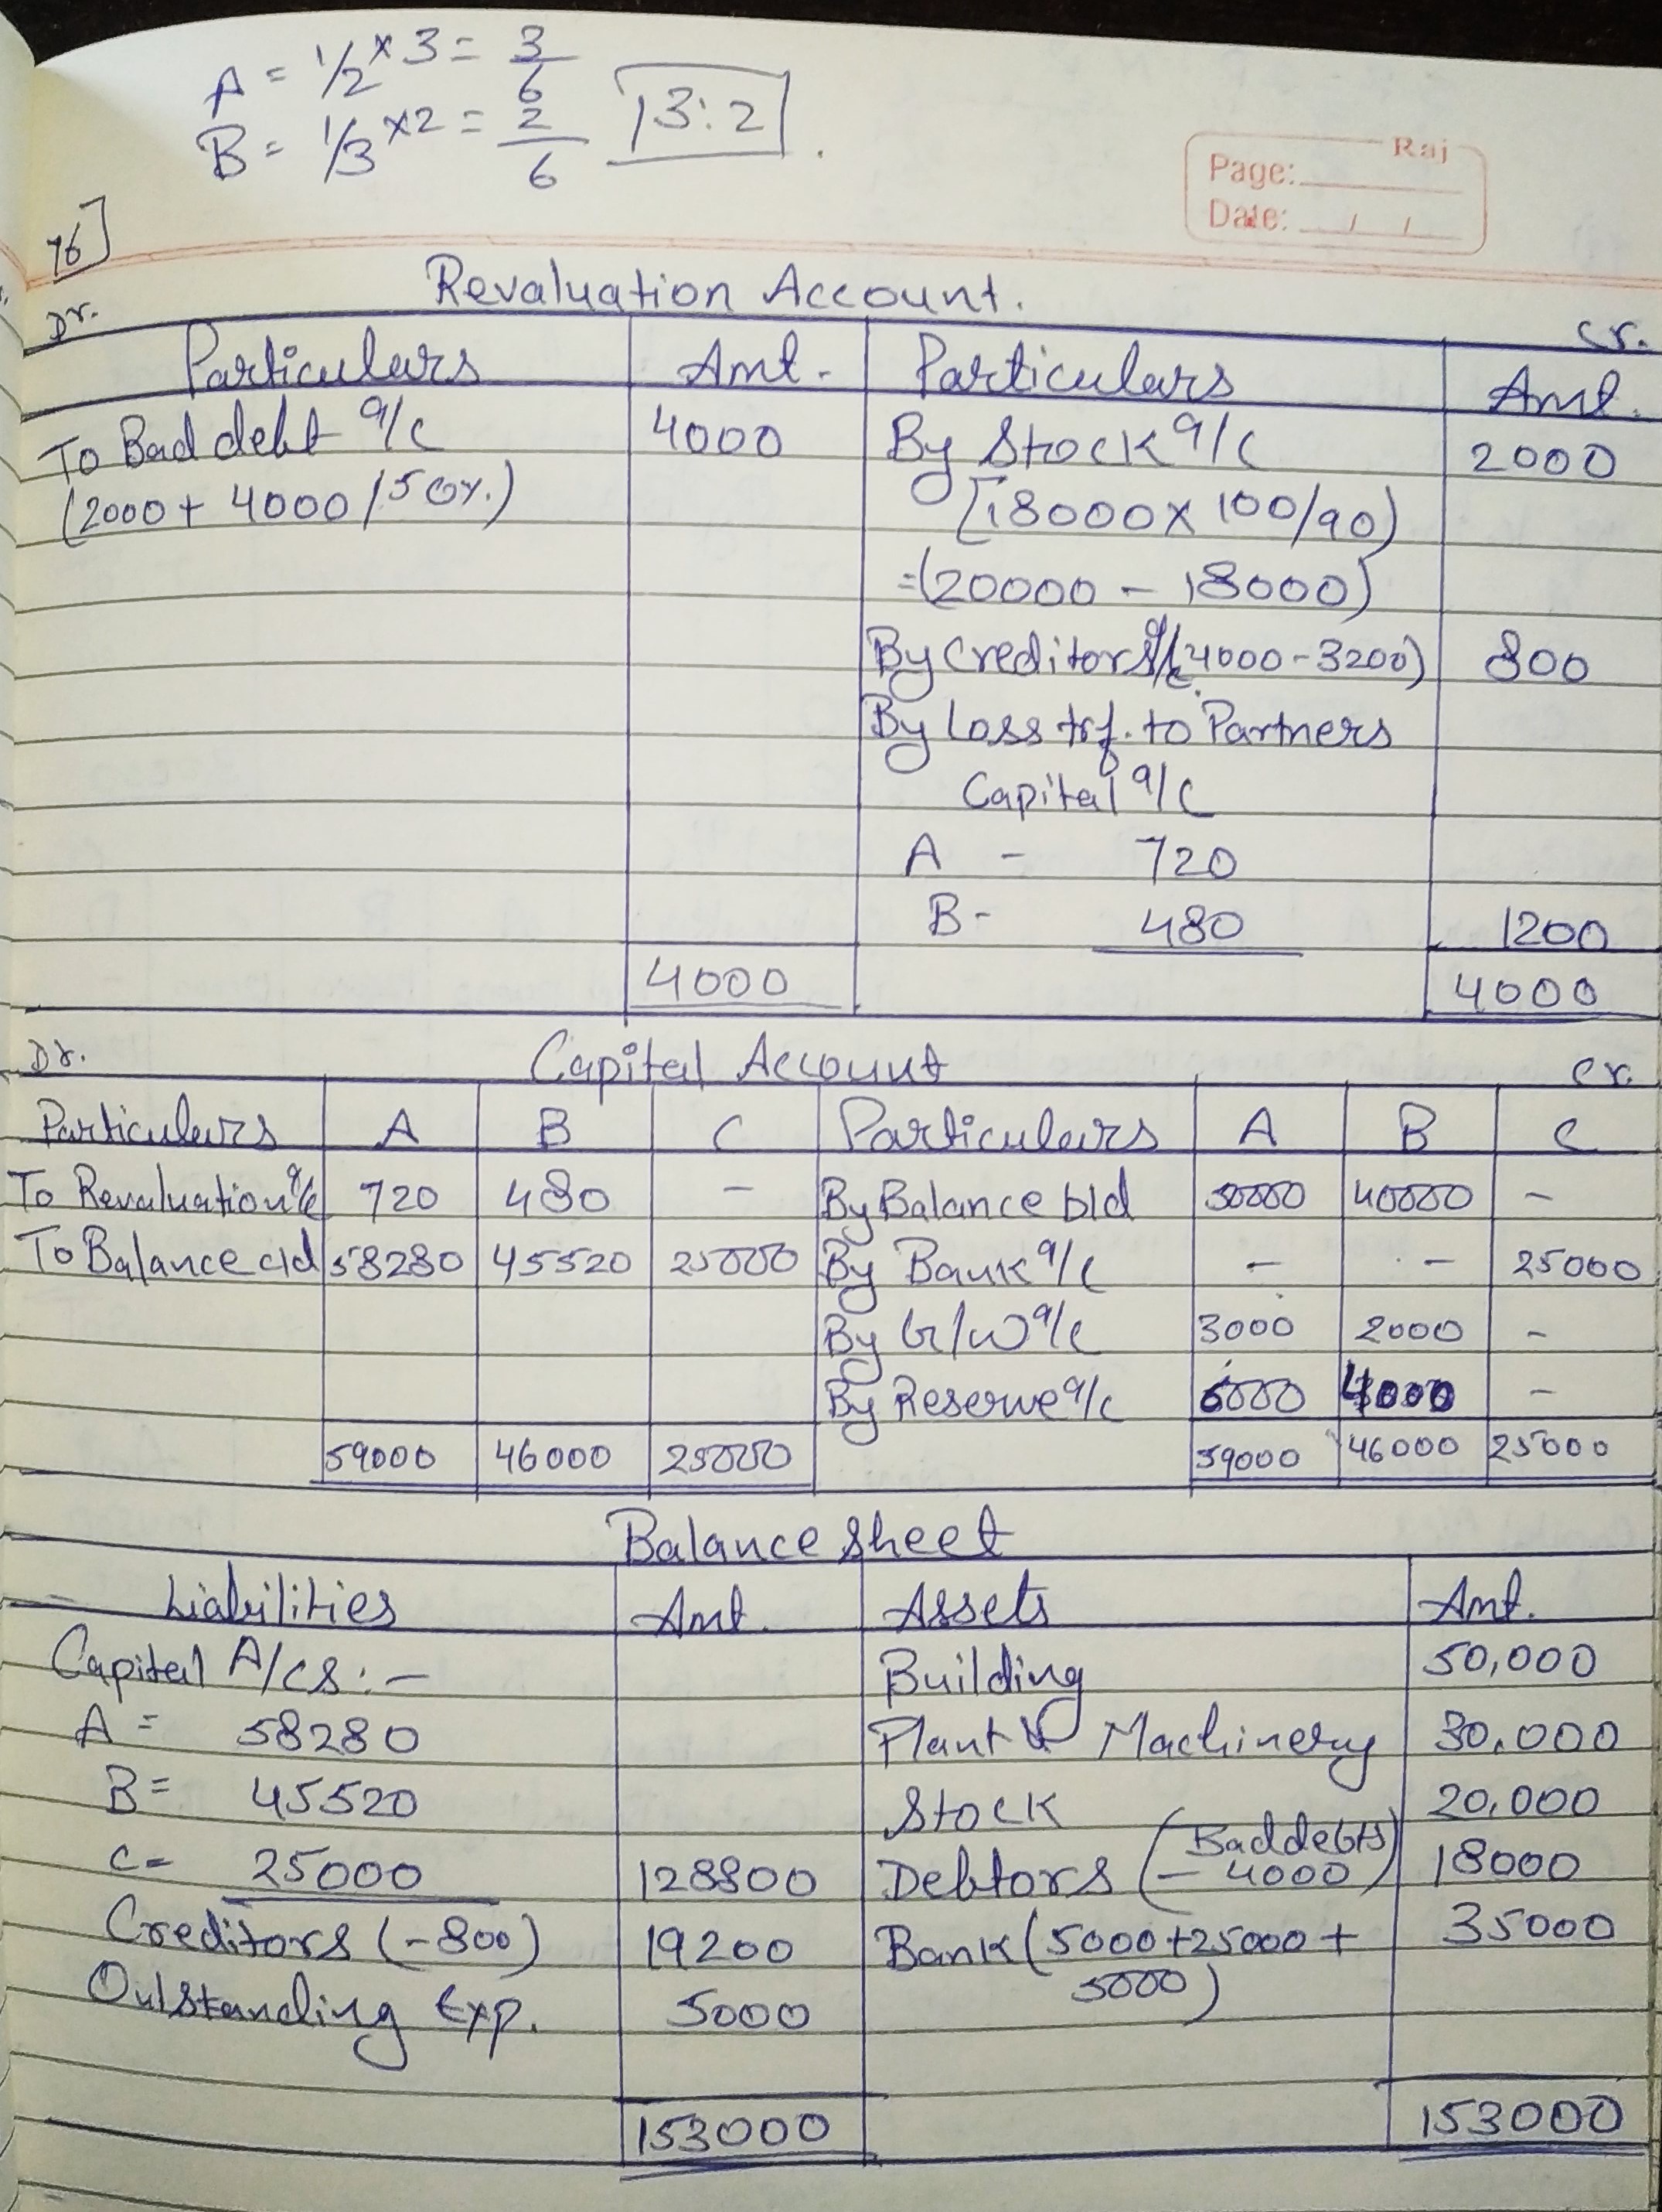 A = 1/2 × 3 = 3/6
B = 1/3 × 2 = 2/6 3:2
Raj
Page:
Date: / /
76]
Revaluation Account.
Dr. Cr.
Particulars Amt. Particulars Amt.
To Bad debt a/c 4000 By Stock a/c 2000
(2000 + 4000 / 50%.) [18000 × 100/90)
=(20000 - 18000)
By Creditors a/c (4000-3200) 800
By Loss trf. to Partners
Capital a/c
A - 720
B - 480 1200
4000 4000
Dr. Capital Account Cr.
Particulars A B C Particulars A B C
To Revaluation a/c 720 480 - By Balance b/d 50000 40000 -
To Balance c/d 58280 45520 25000 By Bank a/c - - 25000
By G/W a/c 3000 2000 -
By Reserve a/c 6000 4000 -
59000 46000 25000 59000 46000 25000
Balance Sheet
Liabilities Amt. Assets Amt.
Capital A/cs :- Building 50,000
A = 58280 Plant & Machinery 30,000
B = 45520 Stock 20,000
C = 25000 128800 Debtors (Bad debts - 4000) 18000
Creditors (-800) 19200 Bank (5000+25000+ 35000
5000)
Outstanding Exp. 5000
153000 153000